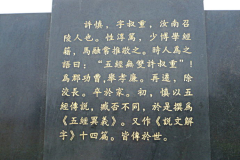 許慎，字叔重，汝南召
陵人也。性淳篤，少博學經
籍，馬融常推敬之。時人爲之
語曰：“五經無雙許叔重”！
爲郡功曹，舉孝廉。再遷，除
洨長。卒於家。初，慎以五
經傳說，臧否不同，於是撰爲
《五經異義》。又作《説文解
字》十四篇。皆傳於世。